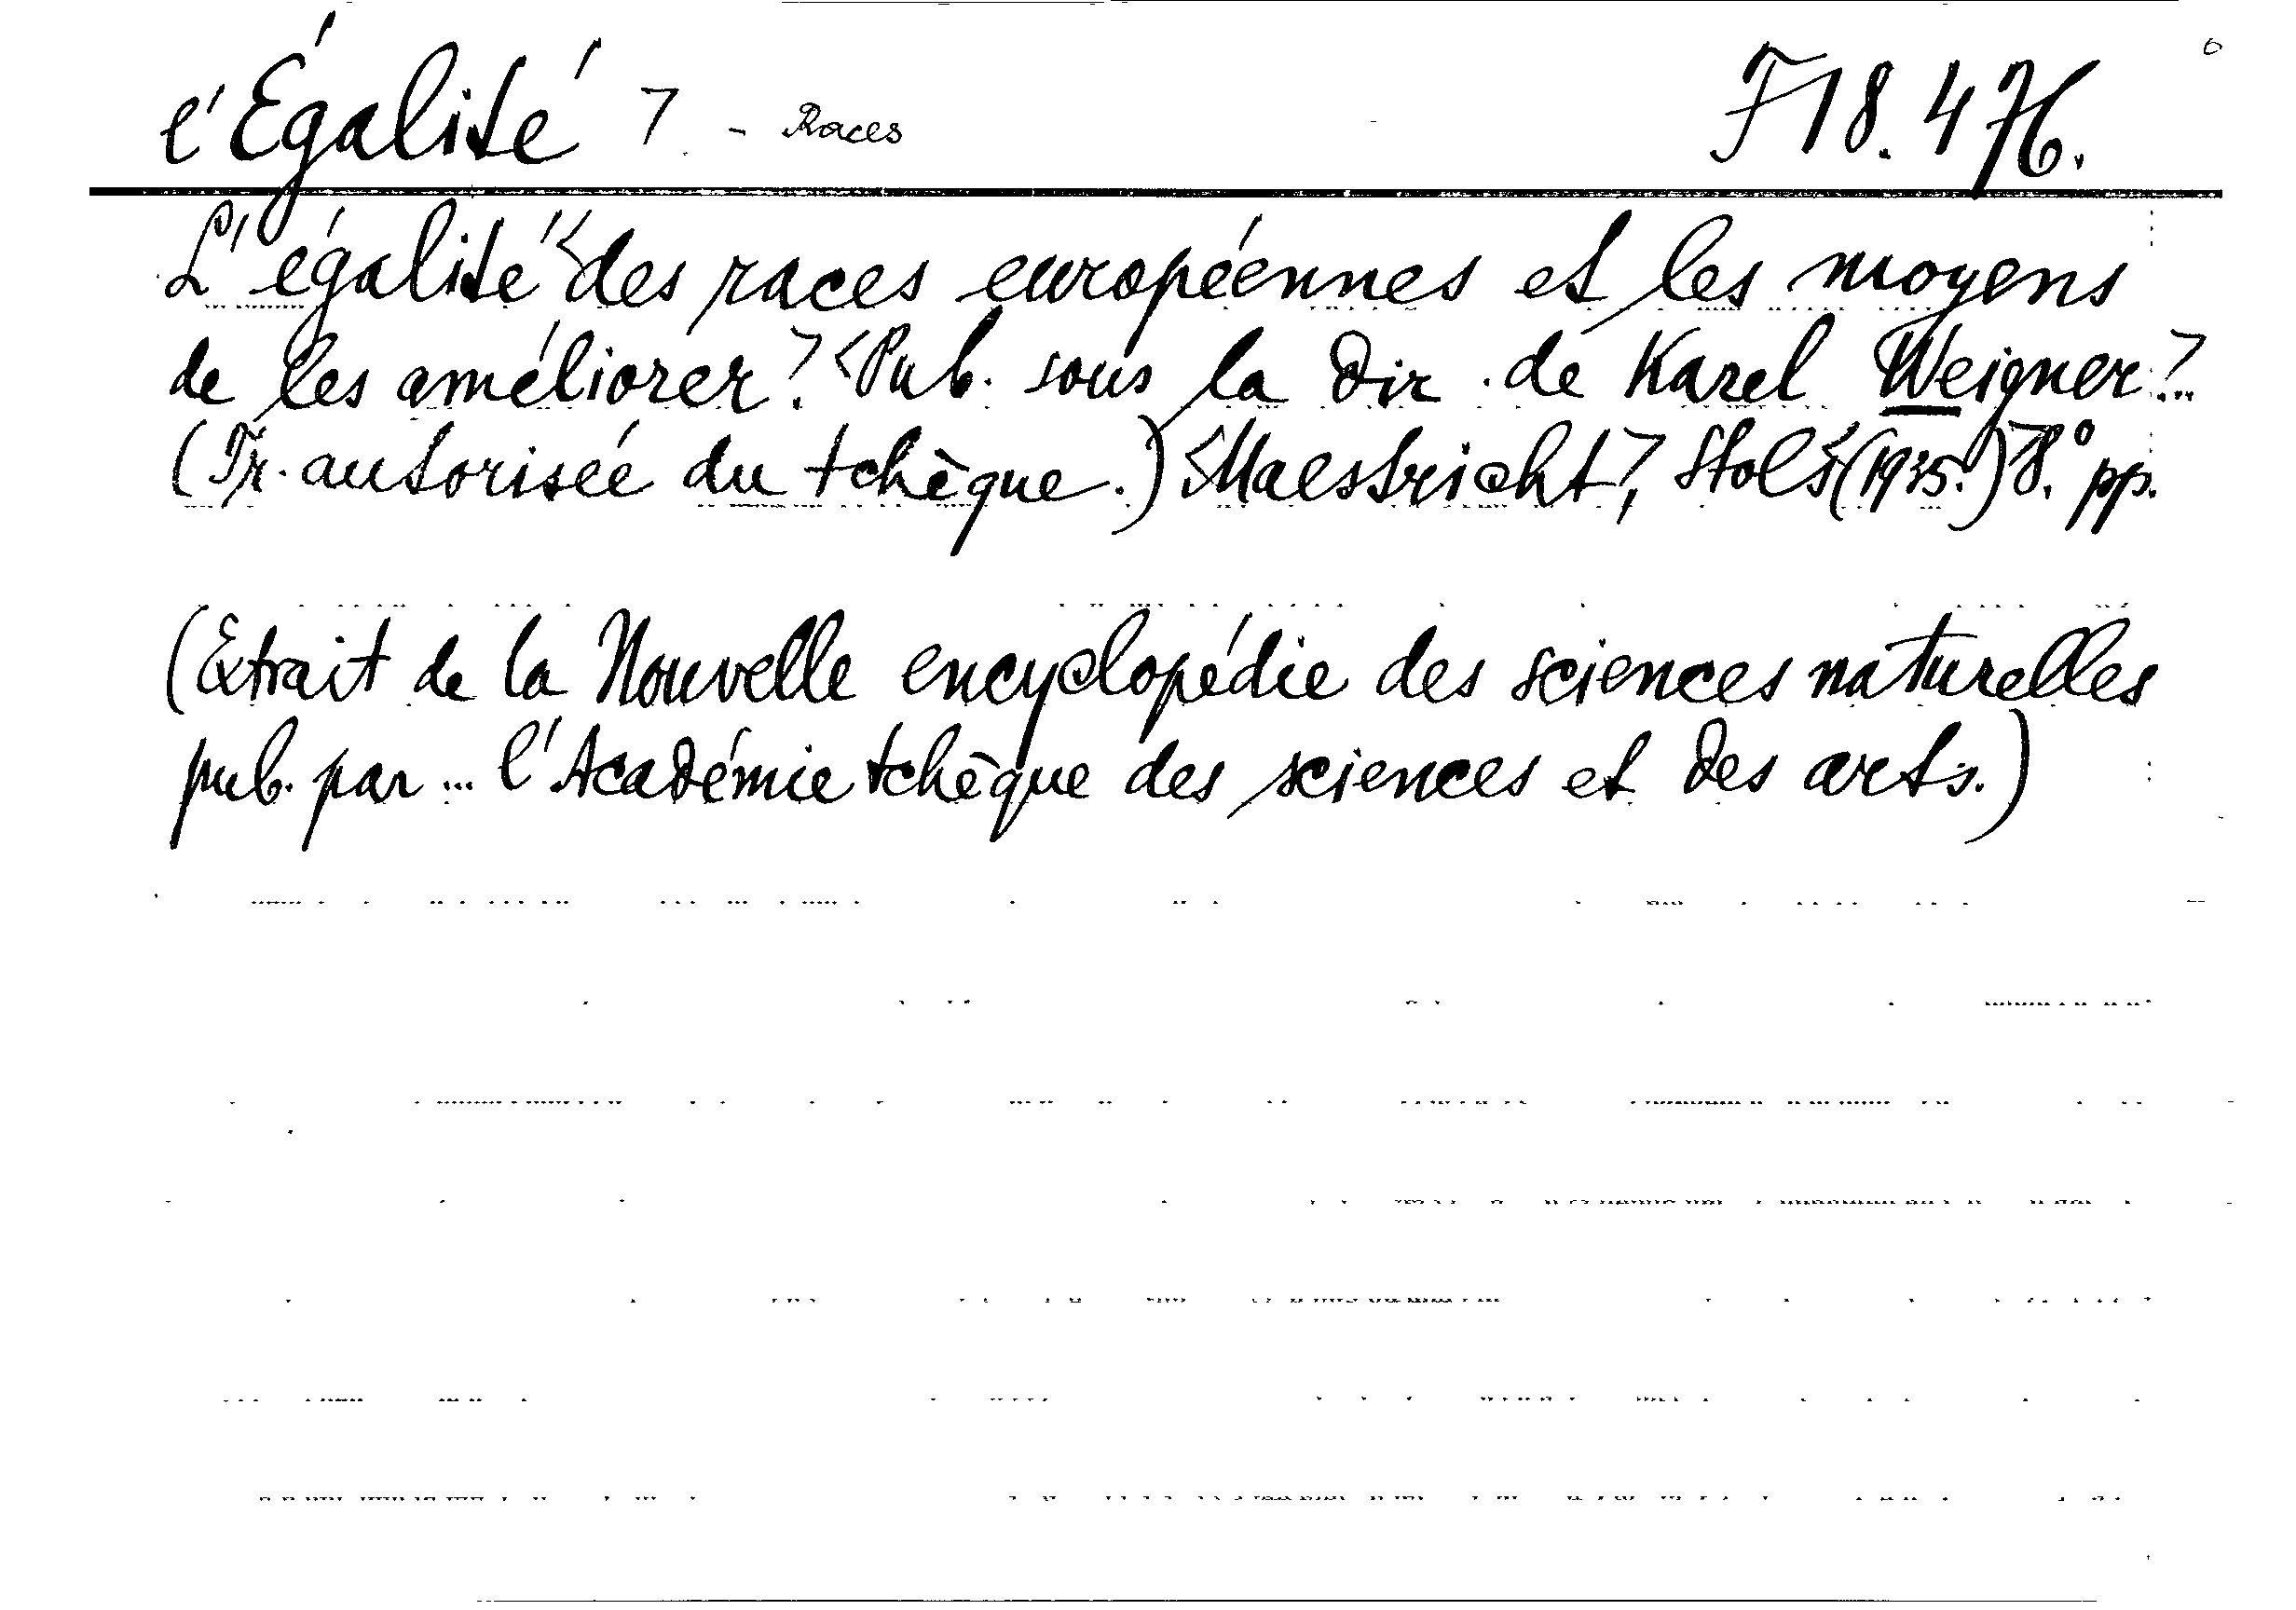 l'Égalité 7. - Races F18.476.
L'égalité <des races européennes et les moyens
de les améliorer>. <Pub. sous la dir. de Karel Weigner>.
(Tr. autorisée du tchèque.) <Maestricht>, Stols <(1935.)> 8.° pp.
(Extrait de la Nouvelle encyclopédie des sciences naturelles
pub. par ... l'Académie tchèque des sciences et des arts.)